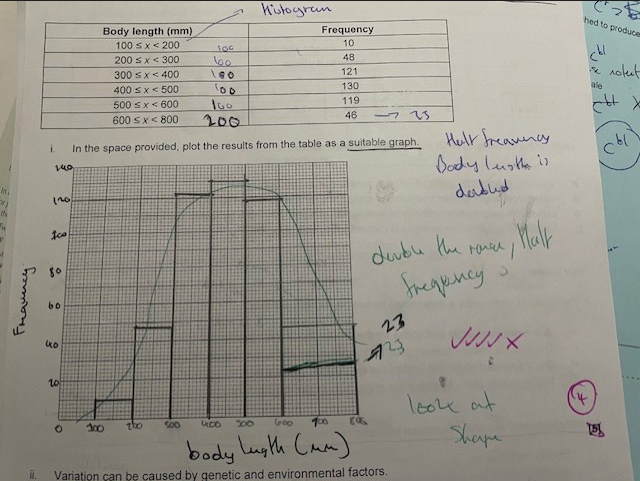 Histogram
Body length (mm) Frequency
100 ≤ x < 200 100 10
200 ≤ x < 300 100 48
300 ≤ x < 400 100 121
400 ≤ x < 500 100 130
500 ≤ x < 600 100 119
600 ≤ x < 800 200 46 → 23
hed to produce
ale
C^bl
i. In the space provided, plot the results from the table as a suitable graph.
Half frequency
Body length is
doubled
double the range, Half
frequency
140
120
100
80
60
40
20
0 100 200 300 400 500 600 700 800
Frequency
body length (mm)
23
23
look at
shape
4
ii. Variation can be caused by genetic and environmental factors.